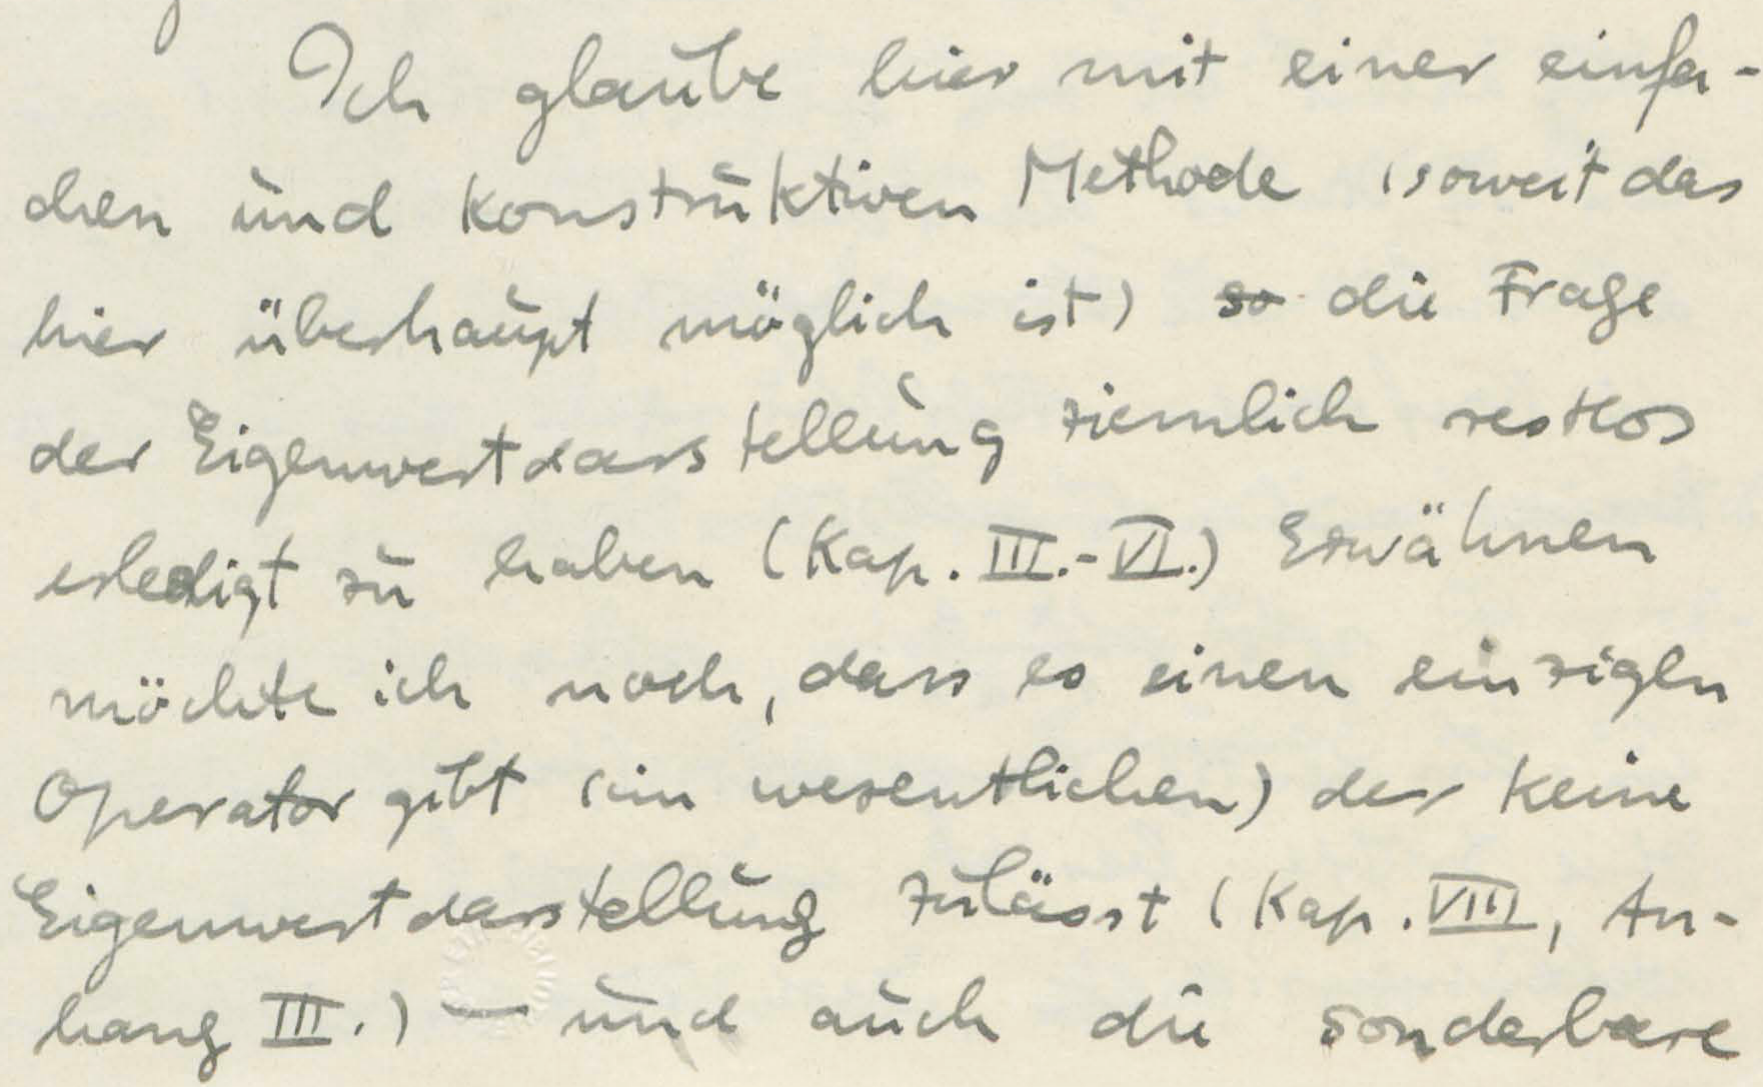 Ich glaube hier mit einer einfa-
chen und konstruktiven Methode (soweit das
hier überhaupt möglich ist) so die Frage
der Eigenwertdarstellung ziemlich restlos
erledigt zu haben (Kap. III.-VI.) Erwähnen
möchte ich noch, dass es einen einzigen
Operator gibt (im wesentlichen) der keine
Eigenwertdarstellung zulässt (Kap. VIII, An-
hang III.) — und auch die sonderbare